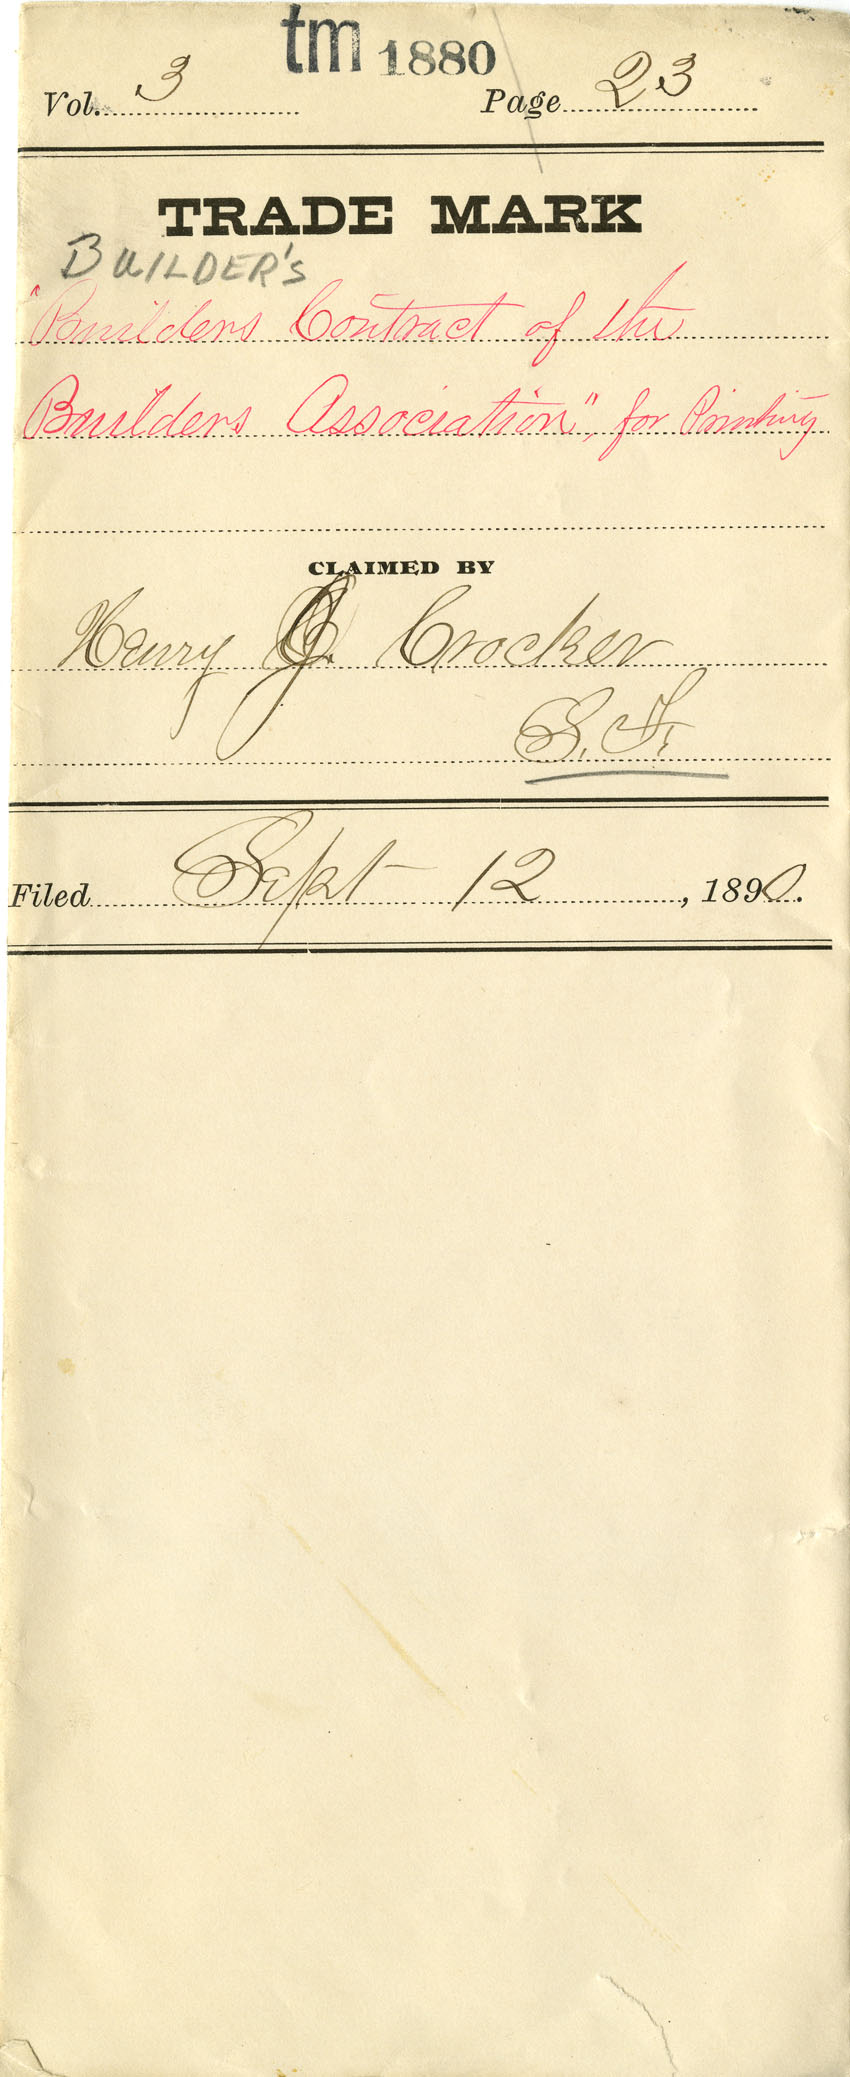 tm 1880
Vol. 3 Page 23
TRADE MARK
BUILDER'S
"Builders Contract of the
Builders Association", for Printing
CLAIMED BY
Henry J. Crocker
S. F.
Filed Sept 12, 1890.